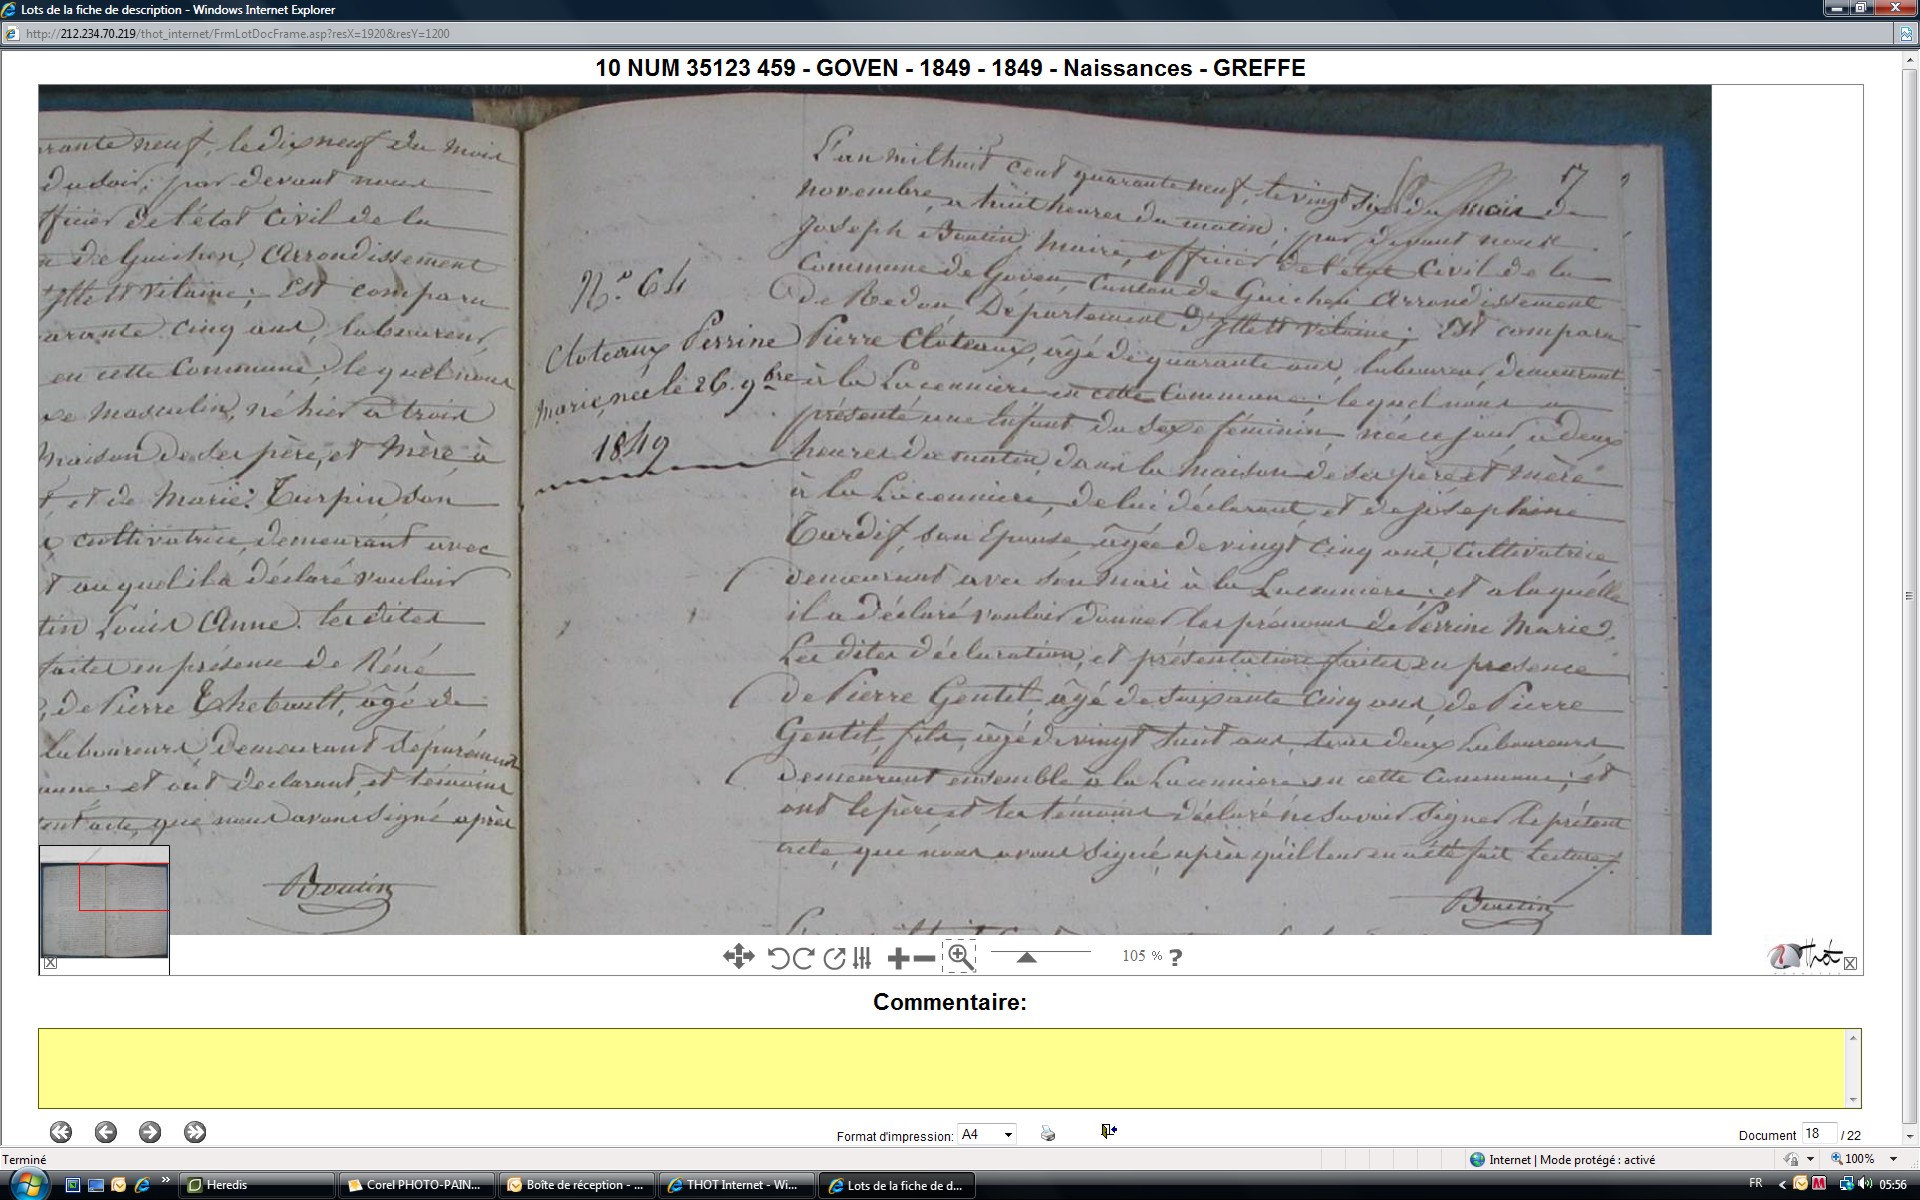 Lots de la fiche de description - Windows Internet Explorer
http://212.234.70.219/thot_internet/FrmLotDocFrame.asp?resX=1920&resY=1200
10 NUM 35123 459 - GOVEN - 1849 - 1849 - Naissances - GREFFE
rante neuf, le dix neuf du mois
du soir, par devant nous
fficier de l'état Civil de la
n de Guichen, Arrondissement
d'Ille et Vilaine; Est comparu
arante cinq ans, laboureur,
en cette Commune, lequel nous
xe masculin, né hier à trois
Maison de ses père, et Mère, à
t, et de Marie Turpin son
cultivatrice, demeurant avec
t auquel il a déclaré vouloir
tin Louis Anne. les dites
faites en présence de Réné
, de Pierre Thebault, âgé de
Laboureurs demeurant séparément
et ont déclarant, et témoins
ent acte, que nous avons signé après
Boutin
17
N.º 64
Cloteaux Perrine
Marie, née le 26. 9bre
1849
L'an mil huit cent quarante neuf, le vingt six du mois de
novembre, à huit heures du matin; par devant nous
Joseph Boutin, Maire, officier de l'état Civil de la
Commune de Goven, Canton de Guichen Arrondissement
de Redon, Département d'Ille et Vilaine; Est comparu
Pierre Cloteaux, âgé de quarante ans, laboureur, demeurant
à la Luconniere en cette Commune; lequel nous a
présenté une Enfant du sexe féminin, née ce jour, à deux
heures du matin, dans la maison de ses père et Mère
à la Luconniere, de lui déclarant, et de joséphine
Tardif, son Epouse, âgée de vingt cinq ans, Cultivatrice
demeurant avec son Mari à la Luconniere; et a laquelle
il a déclaré vouloir donner les prénoms de Perrine Marie.
Les dites déclaration, et présentation faites en présence
de Pierre Gentil, âgé de soixante cinq ans, de Pierre
Gentil, fils, âgé de vingt huit ans, tous deux Laboureurs
demeurant ensemble à la Luconniere en cette Commune; et
ont le père et les témoins déclaré ne savoir signer le présent
acte, que nous avons signé après qu'il leur en a été fait lecture.
Boutin
105 % ?
Thot
Commentaire:
Format d'impression: A4
Document 18 / 22
Terminé
Internet | Mode protégé : activé
100%
Heredis
Corel PHOTO-PAIN...
Boîte de réception - ...
THOT Internet - Wi...
Lots de la fiche de d...
FR
05:56